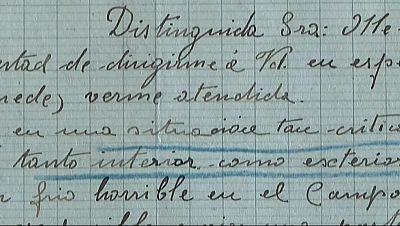 Distinguida Sra: Me
ertad de dirigirme á Vd. en esp
uede, verme atendida.
en una situación tan critic
tanto interior como exterior
frio horrible en el Campo